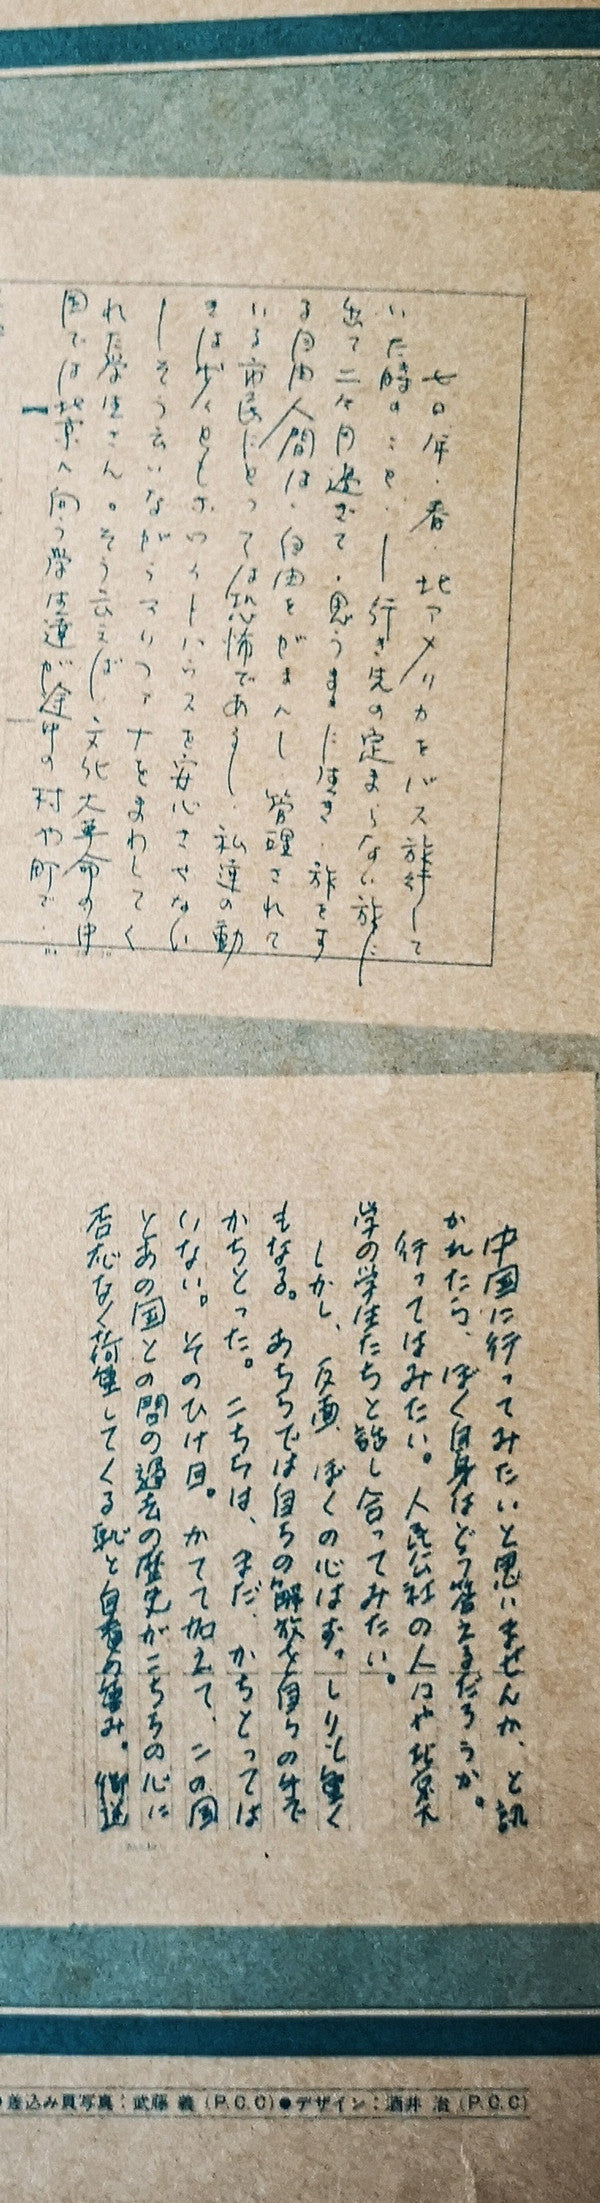 七〇年・春・北アメリカをバス旅行して
いた時のこと・「行き先の定まらない旅に
出て二ヶ月過ぎて・思うままに生き・旅をす
る自由人間は・自由をがまんし・管理されて
いる市民にとっては恐怖であるし・私達の動
きは少くともホワイトハウスを安心させない
」そう云いながらマリファナをまわしてく
れた学生さん。そう云えば・文化大革命の中
国では北京へ向う学生達が途中の村や町で……
中国に行ってみたいと思いませんか、と訊
かれたら、ぼく自身はどう答えるだろうか。
行ってはみたい。人民公社の人口や北京大
学の学生たちと話し合ってみたい。
しかし、反面、ぼくの心はずっしりと重く
もなる。あちらでは自らの解放を自らの手で
かちとった。こちらは、まだ、かちとっては
いない。そのひけ目。かてて加えて、この国
とあの国との間の過去の歴史がこちらの心に
否応なく荷重してくる恥と自責の痛み。
差込み頁写真：武藤 義 (P.C.C)●デザイン：酒井 治 (P.C.C)